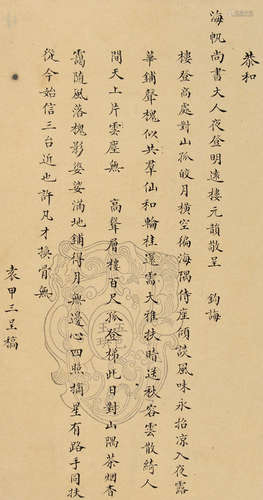 恭和
海帆尚書大人夜登明遠樓元韻敬呈　鈞誨
樓登高處對山孤皎月橫空徧海隅侍座傾談風味永招涼入夜露
華鋪聲槐似共羣仙和輪桂還需大雅扶時送秋容雲散綺人
間天上片雲塵無　高聳層樓百尺孤登梯此日對山隅茶烟香
靄隨風落槐影婆娑滿地鋪得月無邊心四照摘星有路手同扶
從今始信三台近也許凡才換骨無
袁甲三呈稿